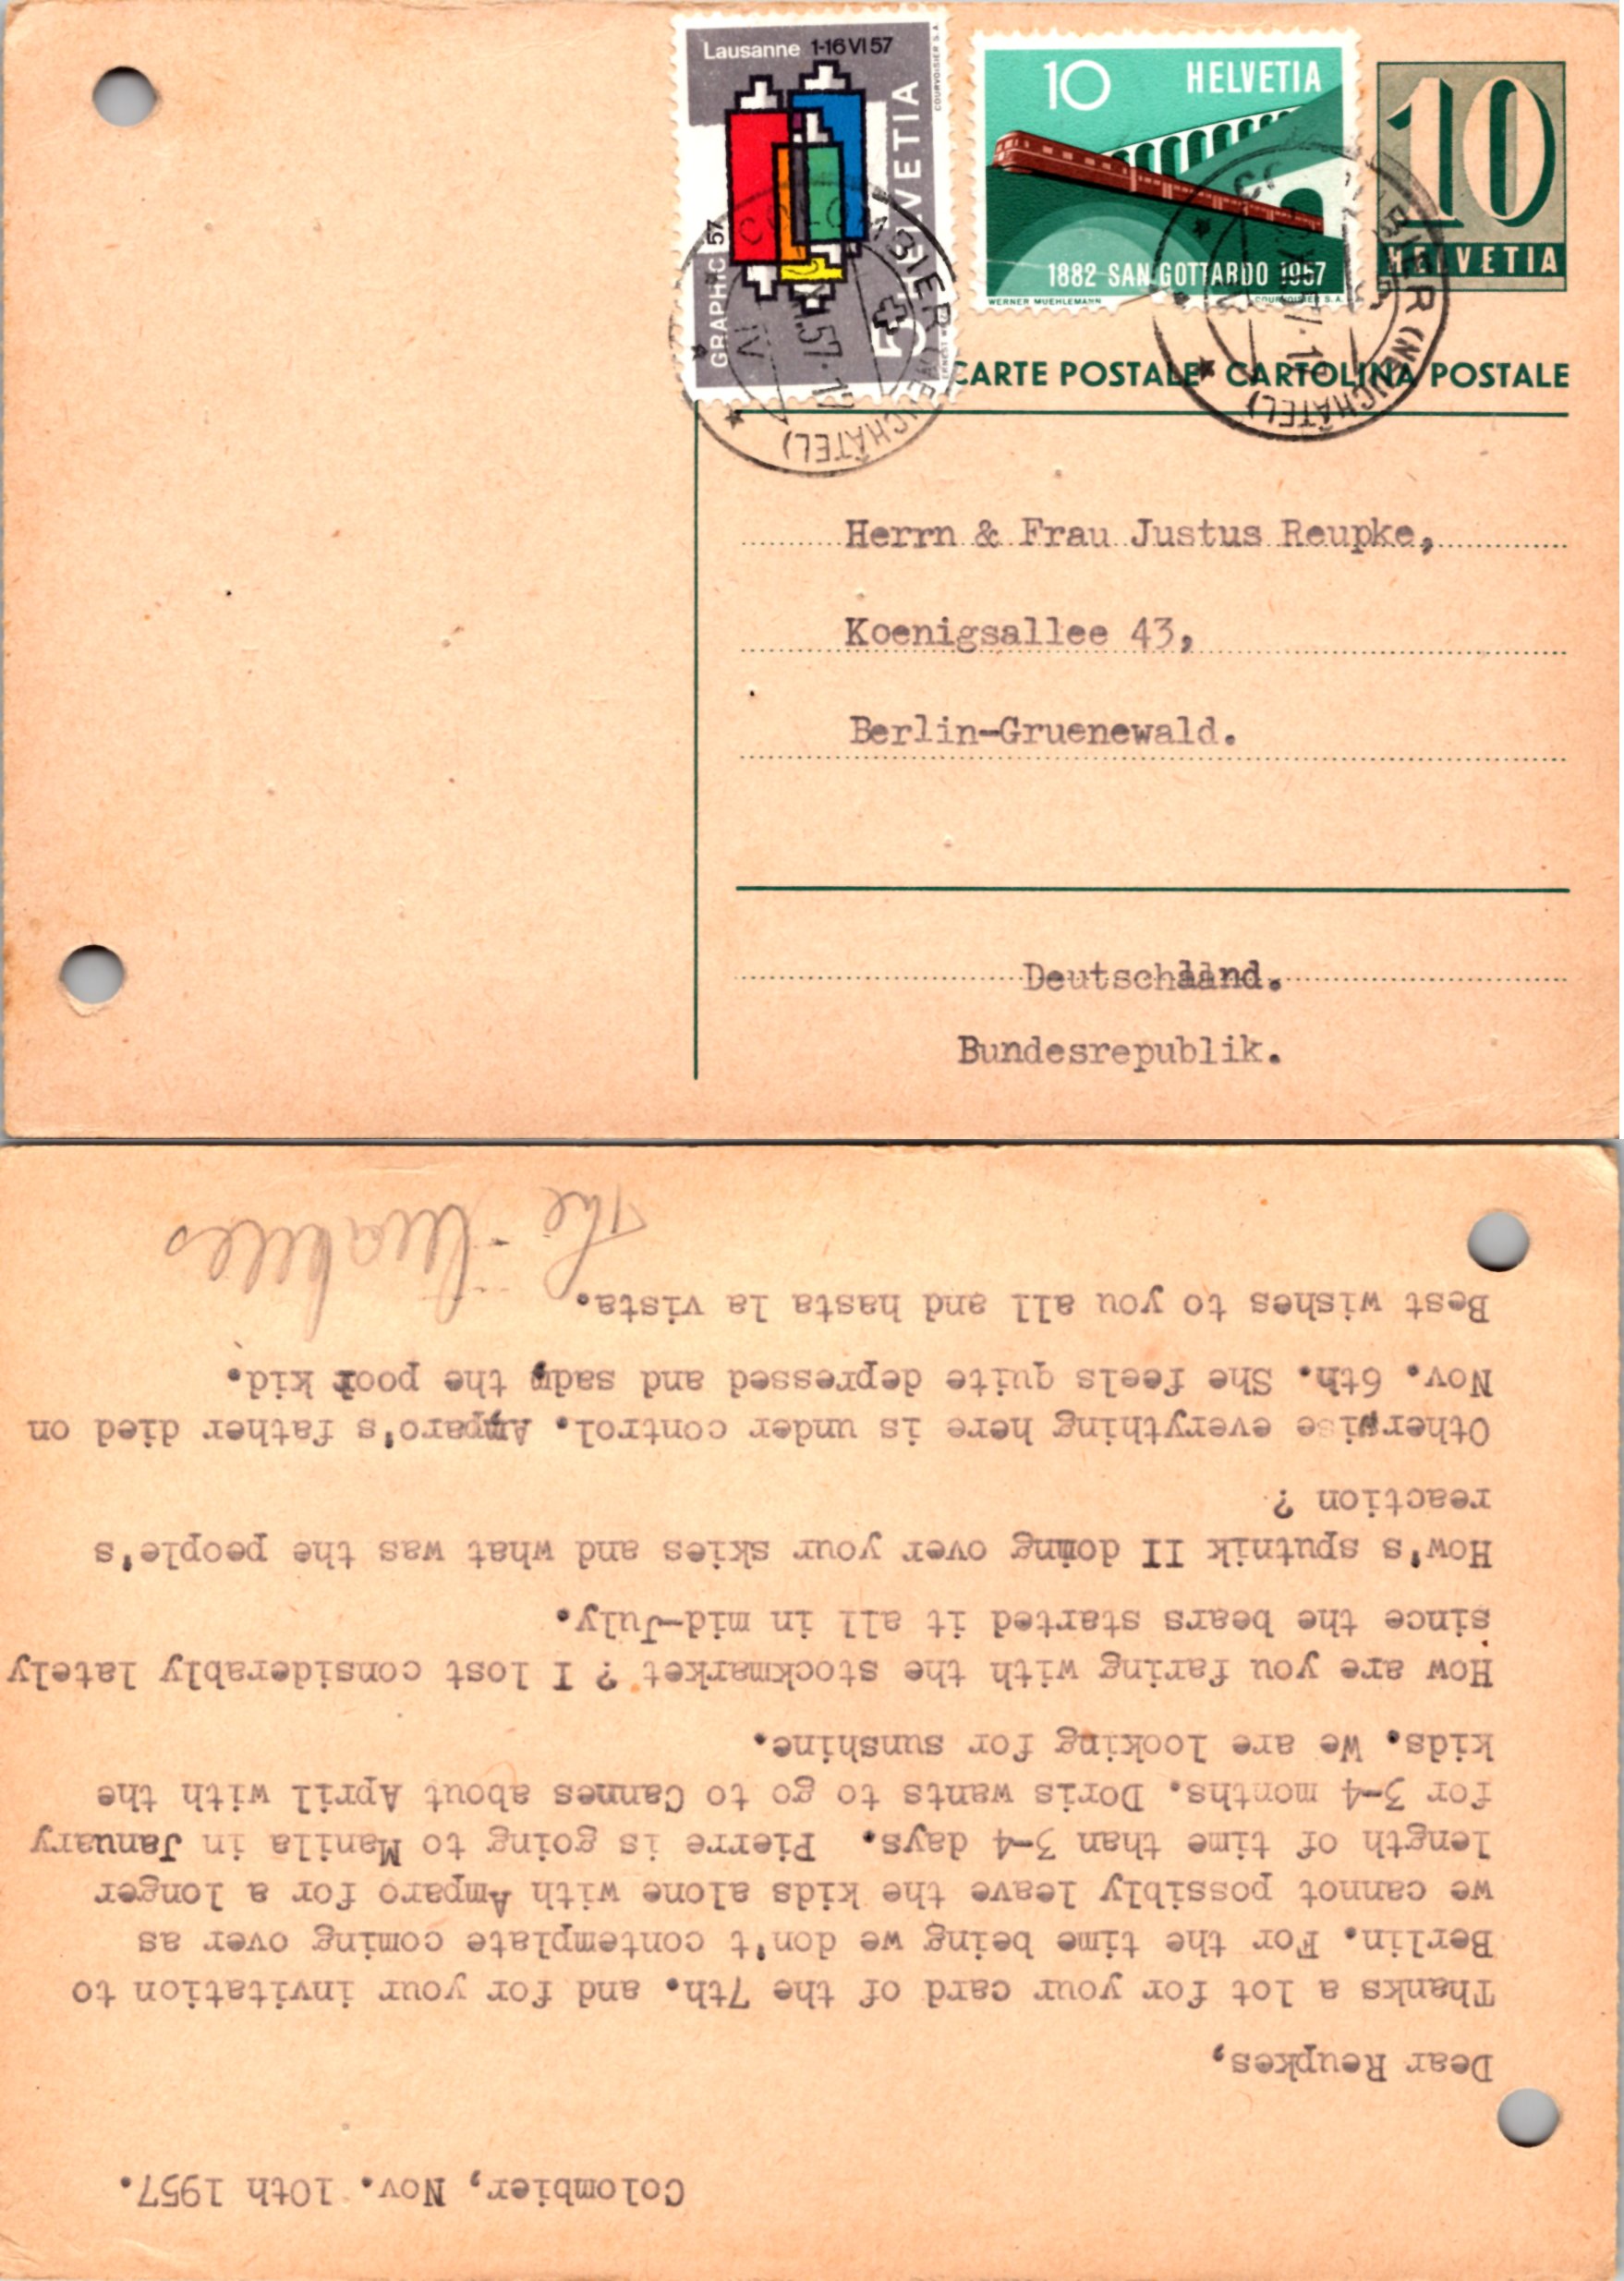 Lausanne 1-16 VI 57
GRAPHIC 57
HELVETIA
5
COURVOISIER S.A.
10 HELVETIA
1882 SAN GOTTARDO 1957
WERNER MUEHLEMANN COURVOISIER S.A.
10
HELVETIA
COLOMBIER (NEUCHÂTEL)
CARTE POSTALE CARTOLINA POSTALE
Herrn & Frau Justus Reupke,
Koenigsallee 43,
Berlin-Gruenewald.
Deutschland.
Bundesrepublik.
Colombier, Nov. 10th 1957.
Dear Reupkes,
Thanks a lot for your card of the 7th. and for your invitation to
Berlin. For the time being we don't contemplate coming over as
we cannot possibly leave the kids alone with Amparo for a longer
length of time than 3-4 days. Pierre is going to Manila in January
for 3-4 months. Doris wants to go to Cannes about April with the
kids. We are looking for sunshine.
How are you faring with the stockmarket ? I lost considerably lately
since the bears started it all in mid-July.
How's sputnik II doing over your skies and what was the people's
reaction ?
Otherwise everything here is under control. Amparo's father died on
Nov. 6th. She feels quite depressed and sad, the poor kid.
Best wishes to you all and hasta la vista.
The